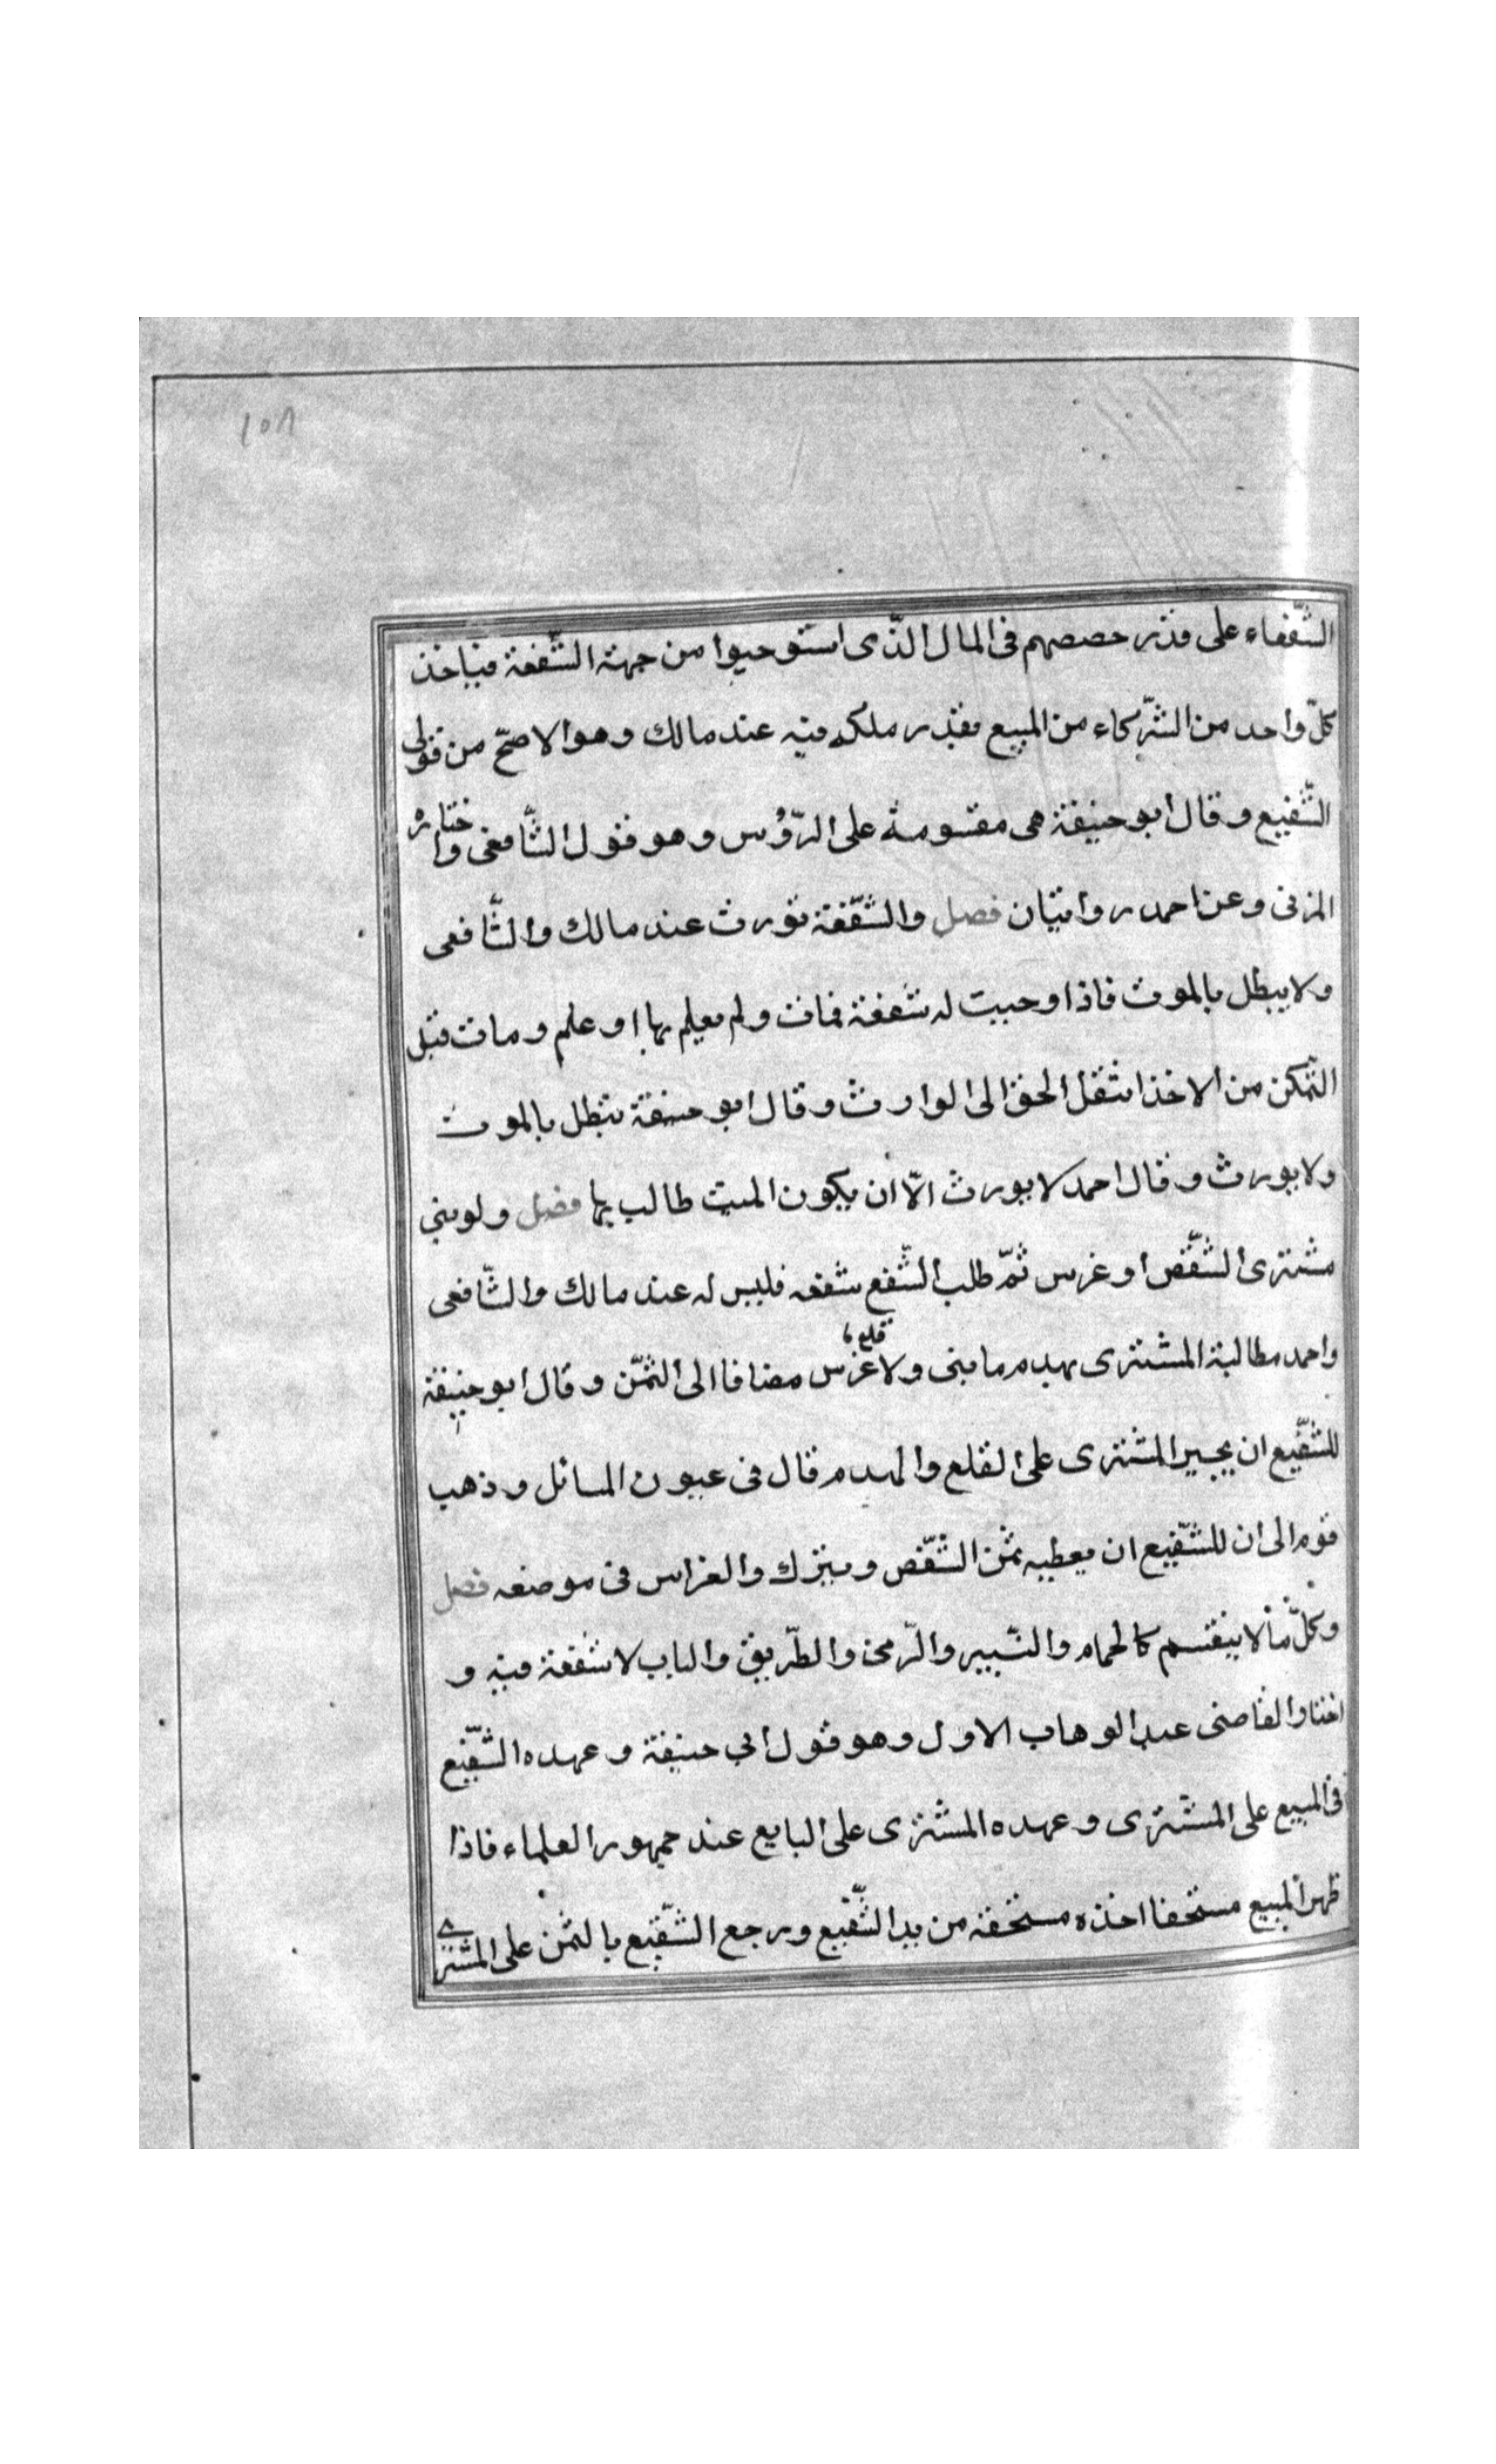 ١٥٨
الشّفعاء على قدر حصصهم فى المال الّذى استوجبوا من جهة الشّفعة فياخذ
كلّ واحد من الشّركاء من المبيع بقدر ملكه فيه عند مالك وهو الاصحّ من قولى
الشّفيع وقال ابو حنيفة هى مقسومة على الرّؤس وهو قول الشّافعى واختاره
المزنى وعن احمد روايتان فصل والشّفعة تورث عند مالك والشّافعى
ولا يبطل بالموت فاذا وجبت له شفعة فمات ولم يعلم بها او علم ومات قبل
التّمكن من الاخذ انتقل الحق الى الوارث وقال ابو حنيفة تبطل بالموت
ولا يورث وقال احمد لا يورث الّا ان يكون الميت طالب بها فصل ولو بنى
مشترى الشّقص او غرس ثمّ طلب الشّفع شفعه فليس له عند مالك والشّافعى
واحمد مطالبة المشترى بهدم ما بنى ولا قلع ما غرس مضافا الى الثّمن وقال ابو حنيفة
للشّفيع ان يجبر المشترى على القلع والهدم قال فى عيون المسائل وذهب
قوم الى ان للشّفيع ان يعطيه ثمن الشّقص ويترك والغراس فى موضعه فصل
وكلّ ما لا ينقسم كالحمام والبّير والرّحى والطّريق والباب لا شفعة فيه و
اختار القاضى عبد الوهاب الاول وهو قول ابى حنيفة وعهده الشّفيع
فى المبيع على المشترى وعهده المشترى على البايع عند جمهور العلماء فاذا
ظهر المبيع مستحقا اخذه مستحقه من يد الشّفيع ورجع الشّفيع بالثمن على المشترى